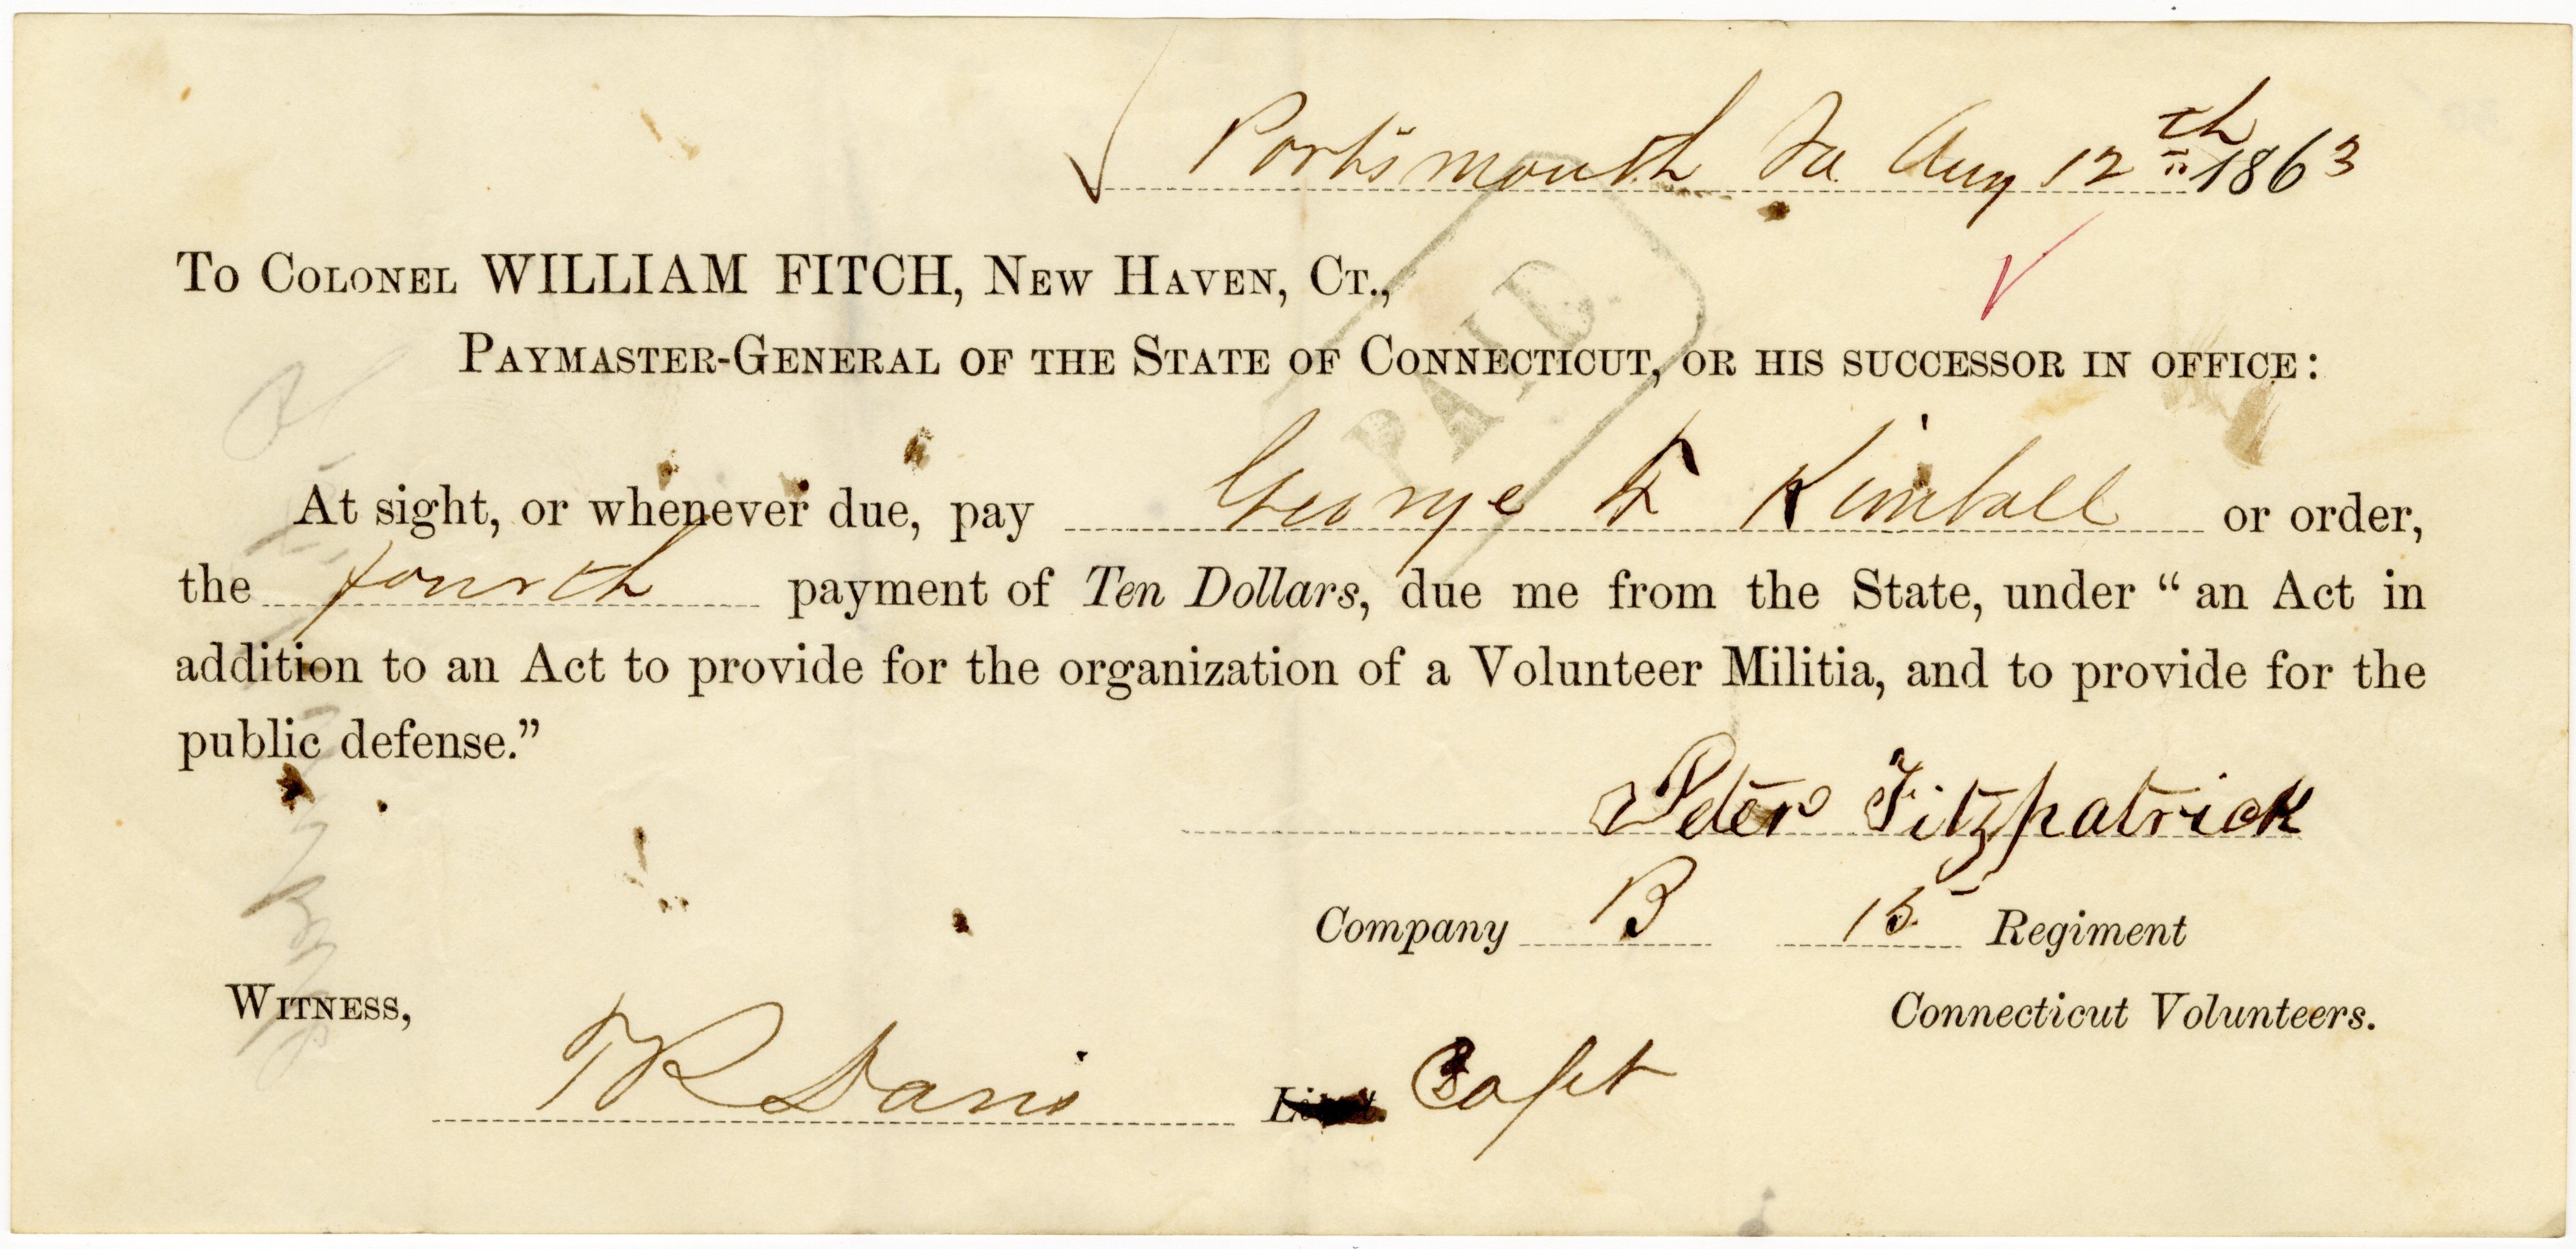 Portsmouth Va Aug 12th 1863
To Colonel WILLIAM FITCH, New Haven, Ct.,
Paymaster-General of the State of Connecticut, or his successor in office:
PAID
At sight, or whenever due, pay George F Kimball or order,
the fourth payment of Ten Dollars, due me from the State, under “ an Act in
addition to an Act to provide for the organization of a Volunteer Militia, and to provide for the
public defense.”
Peter Fitzpatrick
Company B 15 Regiment
Witness,
Connecticut Volunteers.
T R Davis Lieut. Capt